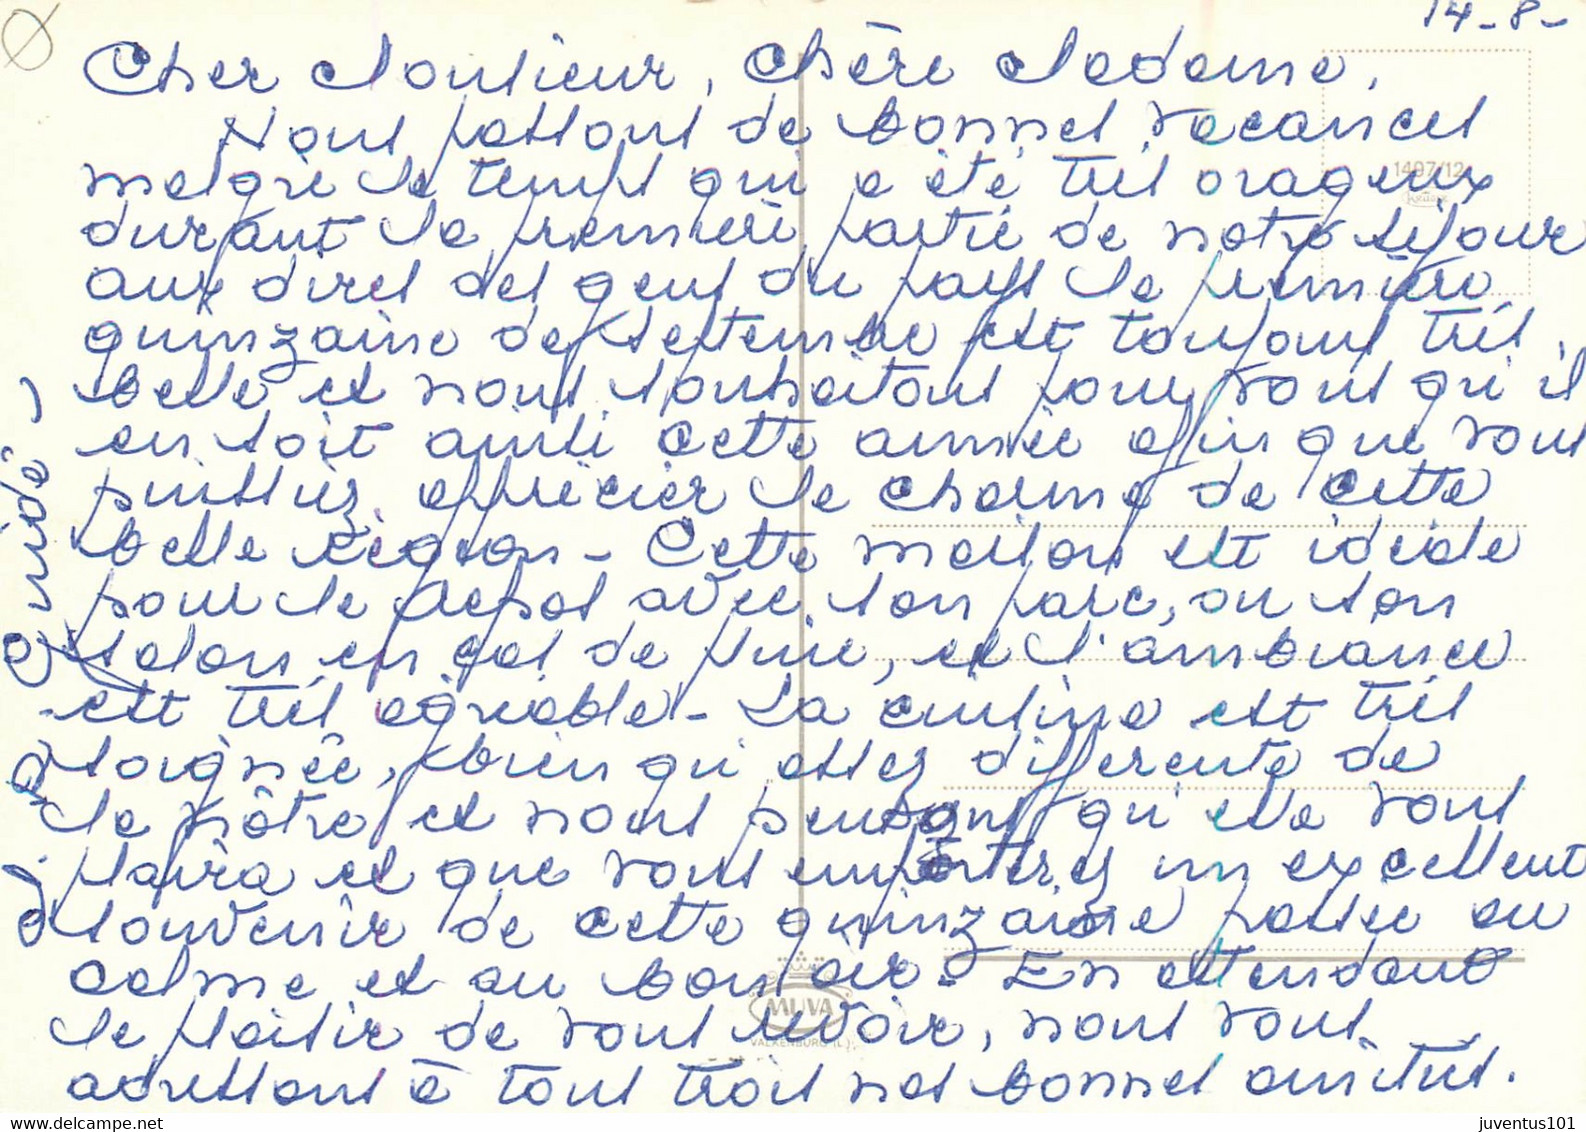 14-8-
Cher Monsieur, Chère Madame,
Nous passons de bonnes vacances
malgré le temps qui a été très orageux
durant la première partie de notre séjour
aux dires des gens du pays la première
quinzaine de septembre est toujours très
belle et nous souhaitons pour vous qu'il
en soit ainsi cette année afin que vous
puissiez apprécier le charme de cette
belle région - Cette maison est idéale
pour le repos avec son parc, ou son
salon en cas de pluie, et l'ambiance
est très agréable - La cuisine est très
soignée, bien qu'assez différente de
la nôtre et nous pensons qu'elle vous
plaira et que vous emporterez un excellent
souvenir de cette quinzaine passée au
calme et au bon air. En attendant
le plaisir de vous revoir, nous vous
adressons à tous trois nos bonnes amitiés.
1497/12
MUVA
VALKENBURG (L.)
juventus101